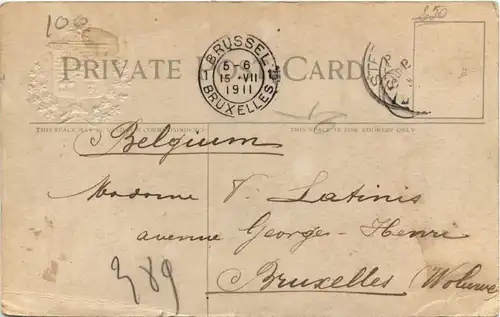 100
250
PRIVATE POST CARD
BRUSSEL
5-6
1 15 VII 1
1911
BRUXELLES
THIS SPACE MAY BE USED FOR CORRESPONDENCE
THIS SPACE IS FOR ADDRESS ONLY
Belgium
Madame V. Latinis
avenue Georges-Henri
389
Bruxelles (Woluwe